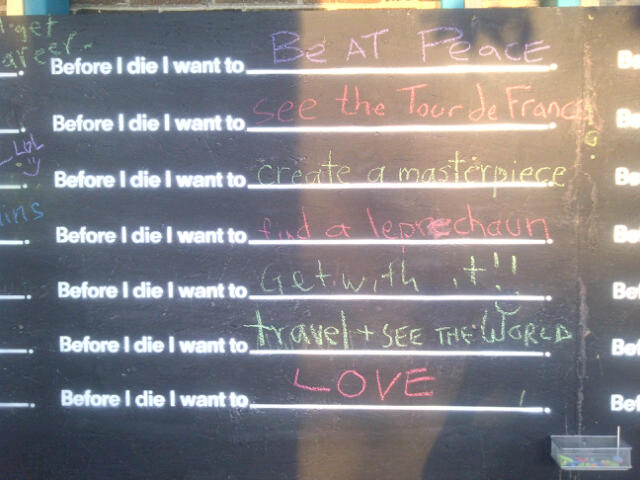 get
areer.
Before I die I want to Be AT Peace.
Before I die I want to see the Tour de France
LOL :)
Before I die I want to create a masterpiece.
ins
Before I die I want to find a leprechaun.
Before I die I want to Get with it!!.
Before I die I want to travel + SEE THE WORLD.
Before I die I want to LOVE.
Be
Be
Be
Be
Be
Bef
Bef